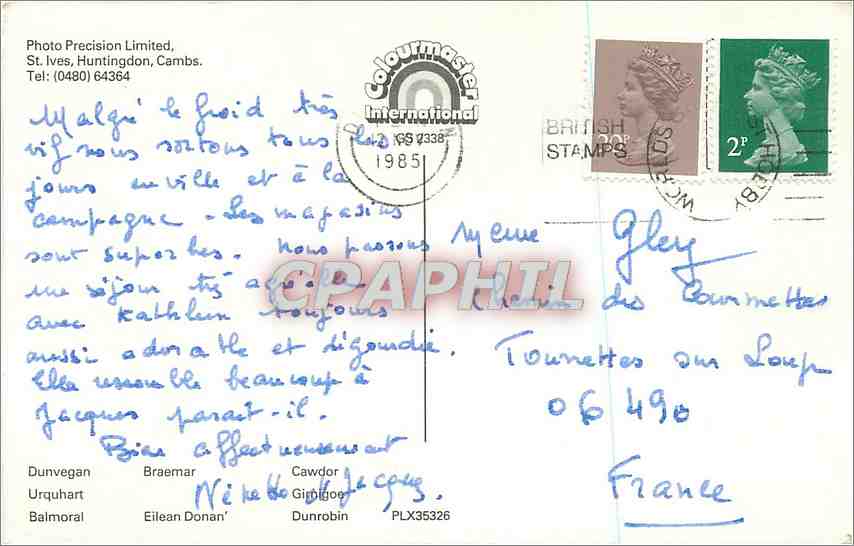 Photo Precision Limited,
St. Ives, Huntingdon, Cambs.
Tel: (0480) 64364
Colourmaster
International
GS 2338
1985
BRITISH
STAMPS
WORLDS
HOBBY
20P
2P
Malgré le froid très
vif nous sortons tous les
jours en ville et à la
campagne - Les magasins
sont superbes. Nous passons
un séjour très agréable
avec Kathleen toujours
aussi adorable et dégourdie.
Elle ressemble beaucoup à
Jacques paraît-il.
Bien affectueusement
Jacques.
Mme Gley
Chemin des Courmettes
Tourrettes sur Loup
06 490
France
Dunvegan Braemar Cawdor
Urquhart Girnigoe
Balmoral Eilean Donan' Dunrobin PLX35326
CPAPHIL